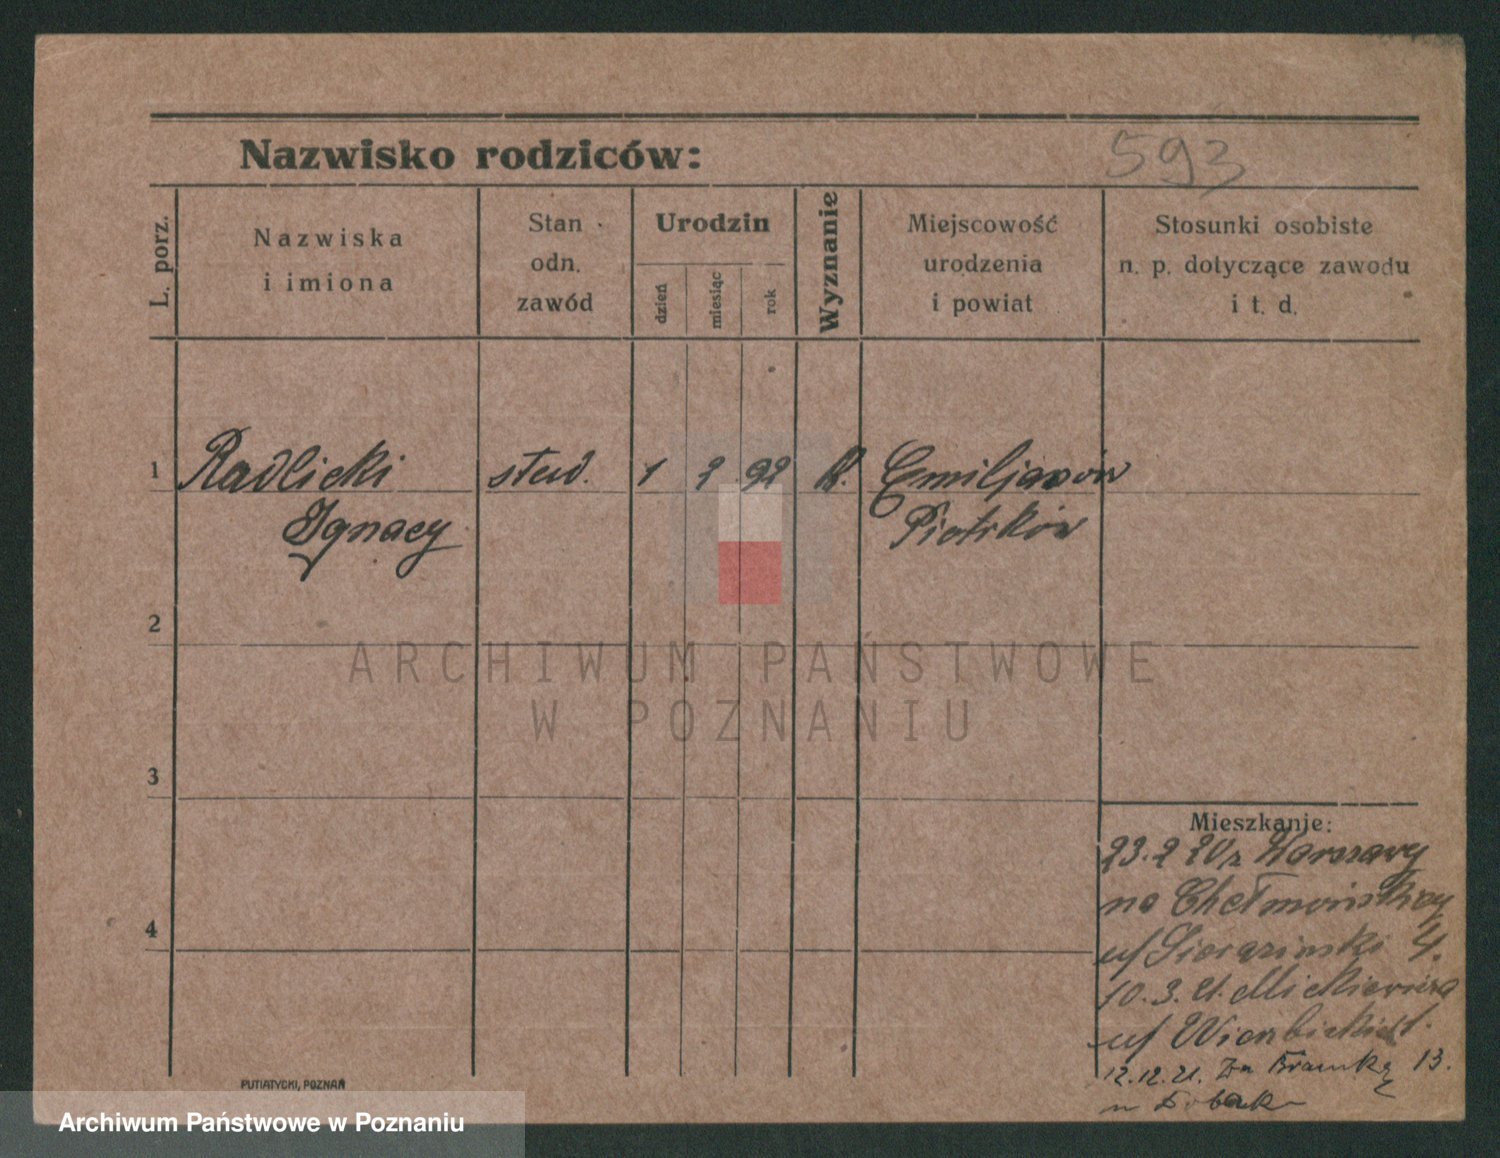 593
Nazwisko rodziców:
L. porz.
Nazwiska
i imiona
Stan
odn.
zawód
Urodzin
dzień
miesiąc
rok
Wyznanie
Miejscowość
urodzenia
i powiat
Stosunki osobiste
n. p. dotyczące zawodu
i t. d.
1 Radlicki stud. 1 2 92 K. Emiljanów
Ignacy Piotrków
2
ARCHIWUM PAŃSTWOWE
W POZNANIU
3
Mieszkanie:
23.2 20 z Warszawy
na Chełmońskiey
4
u/ 4.
10.3.21. Mickiewicza
u/
12.12.21. Za Bramką 13.
PUTIATYCKI, POZNAŃ
Archiwum Państwowe w Poznaniu